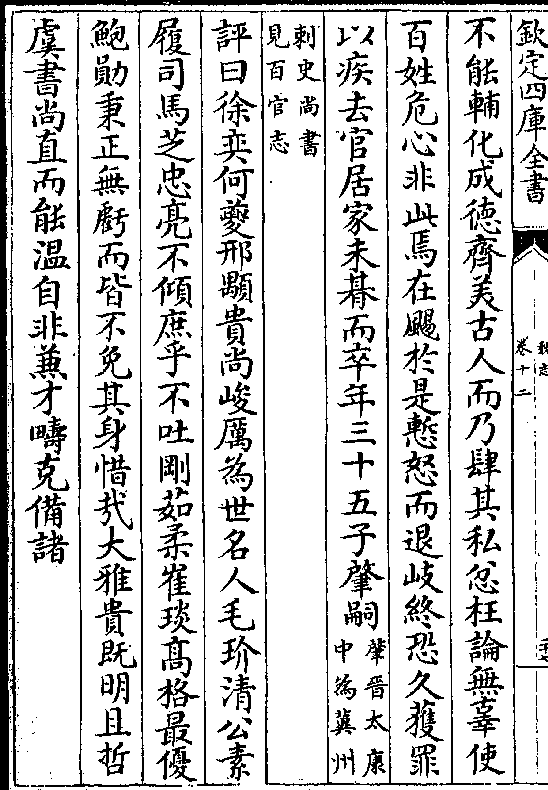 欽定四庫全書
魏志
卷十二
不能輔化成德齊美古人而乃肆其私忿枉論無辜使
百姓危心非此焉在颺於是慙怒而退岐終恐久獲罪
以疾去官居家未朞而卒年三十五子肇嗣肇晉太康
中為冀州
刺史尚書
見百官志
評曰徐奕何夔邢顒貴尚峻厲為世名人毛玠清公素
履司馬芝忠亮不傾庶乎不吐剛茹柔崔琰髙格最優
鮑勛秉正無虧而皆不免其身惜哉大雅貴既明且哲
虞書尚直而能溫自非兼才疇克備諸